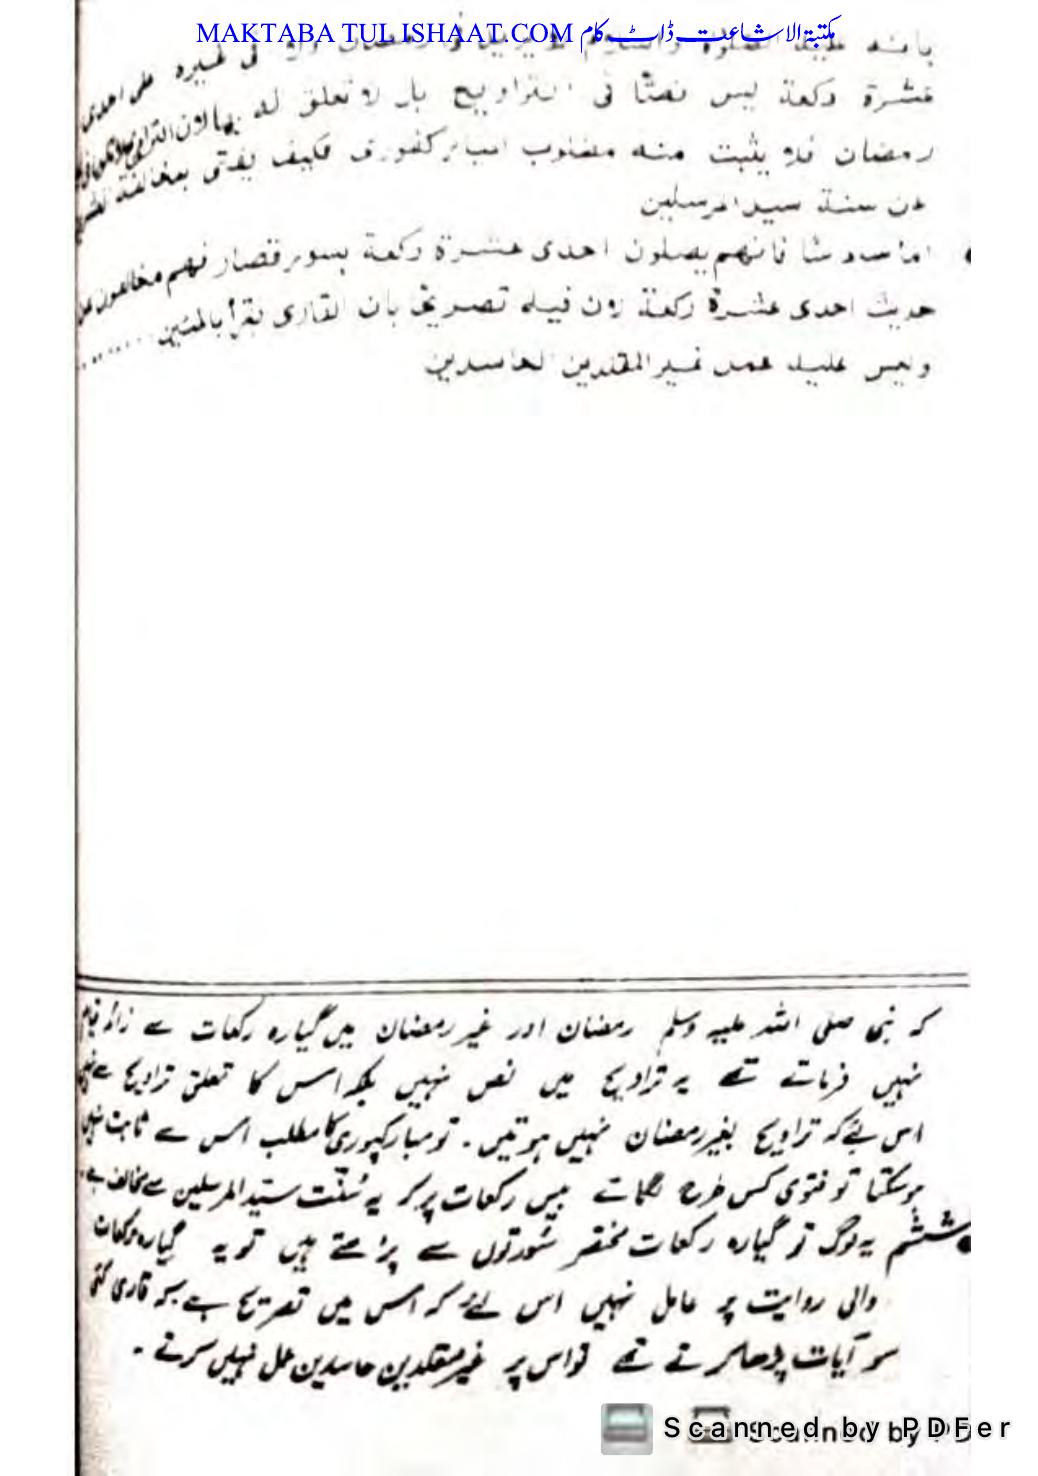 MAKTABA TUL ISHAAT.COM مکتبۃ الاشاعت ڈاٹ کام
بانه عليه الصلوة والسلام لا يزيد في رمضان ولا فى غيره على احدى
عشرة ركعة ليس نصًا فى التراويح بل لا تعلق له بها لان التراويح
رمضان فلا يثبت منه مطلوب المباركفورى فكيف يفتى بمخالفة
عن سنة سيد المرسلين
اما سادسًا فانهم يصلون احدى عشرة ركعة بسور قصار فهم مخالفون عن
حديث احدى عشرة ركعة لان فيه تصريحًا بان القارى يقرأ بالمئين ........
وليس عليه عمل غير المقلدين الحاسدين
کہ نبی صلی اللہ علیہ وسلم رمضان اور غیر رمضان میں گیارہ رکعات سے زائد قیام
نہیں فرماتے تھے یہ تراویح میں نص نہیں بلکہ اس کا تعلق تراویح سے نہیں
اس لئے کہ تراویح بغیر رمضان نہیں ہوتیں۔ تو مبارکپوری کا مطلب اس سے ثابت نہیں
ہوسکتا تو فتوی کس طرح لگاتے بیس رکعات پر کہ یہ سُنّت سیّد المرسلین سے مخالف ہے۔
● ششم یہ لوگ تو گیارہ رکعات مختصر سُورتوں سے پڑھتے ہیں تو یہ گیارہ رکعات
والی روایت پر عامل نہیں اس لئے کہ اس میں تصریح ہے کہ قاری کئی
سو آیات پڑھا کرتے تھے تو اس پر غیر مقلدین حاسدین عمل نہیں کرتے۔
Scanned by PDFer